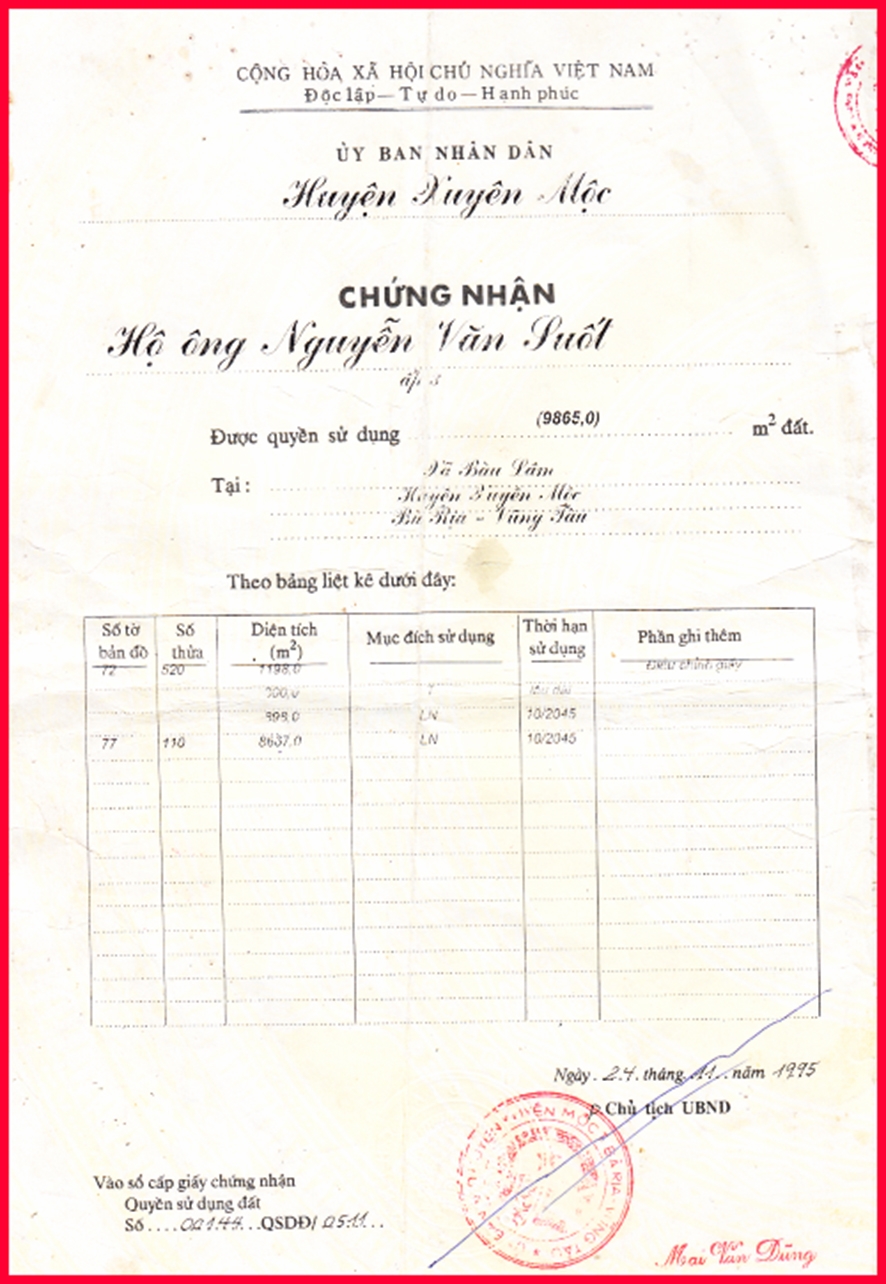 CỘNG HÒA XÃ HỘI CHỦ NGHĨA VIỆT NAM
Độc lập — Tự do — Hạnh phúc
ỦY BAN NHÂN DÂN
Huyện Xuyên Mộc
CHỨNG NHẬN
Hộ ông Nguyễn Văn Suốt
ấp 3
Được quyền sử dụng (9865,0) m² đất.
Tại : Xã Bàu Lâm
Huyện Xuyên Mộc
Bà Rịa - Vũng Tàu
Theo bảng liệt kê dưới đây:
Số tờ bản đồ Số thửa Diện tích (m²) Mục đích sử dụng Thời hạn sử dụng Phần ghi thêm
72 520 1198,0 Điều chỉnh giấy
300,0 T lâu dài
898,0 LN 10/2045
77 110 LN 10/2045
Ngày 24 tháng 11 năm 1995
Chủ tịch UBND
Vào sổ cấp giấy chứng nhận
Quyền sử dụng đất
Số QSDĐ/
HUYỆN XUYÊN MỘC BÀ RỊA VŨNG TÀU
Mai Văn Dũng